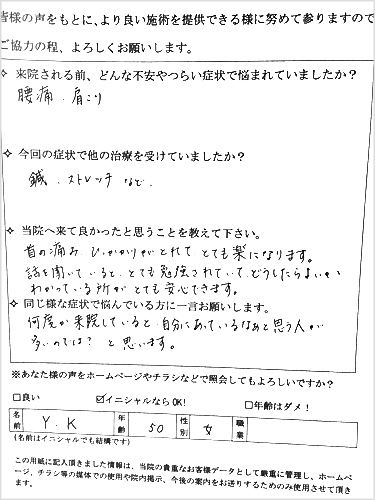 皆様の声をもとに、より良い施術を提供できる様に努めて参りますので
ご協力の程、よろしくお願いします。
✧ 来院される前、どんな不安やつらい症状で悩まれていましたか？
腰痛、肩こり
✧ 今回の症状で他の治療を受けていましたか？
鍼、ストレッチ など、
✧ 当院へ来て良かったと思うことを教えて下さい。
首の痛み ひっかかりがとれて とても楽になります。
話を聞いていると、とても勉強されていて、どうしたらよいか
わかっている所がとても安心できます。
✧ 同じ様な症状で悩んでいる方に一言お願いします。
何度か来院していると、自分にあっているなぁと思う人が
多いのでは？ と思います。
※あなた様の声をホームページやチラシなどで照会してもよろしいですか？
□良い ☑イニシャルならOK! □年齢はダメ！
名前 Y.K 年齢 50 性別 女 職業
(名前はイニシャルでも結構です)
この用紙に記入頂きました情報は、当院の貴重なお客様データとして厳重に管理し、ホームペ
ージ、チラシ等の媒体での使用や院内掲示、今後の案内をお送りするためのみ使用させて頂き
ます。